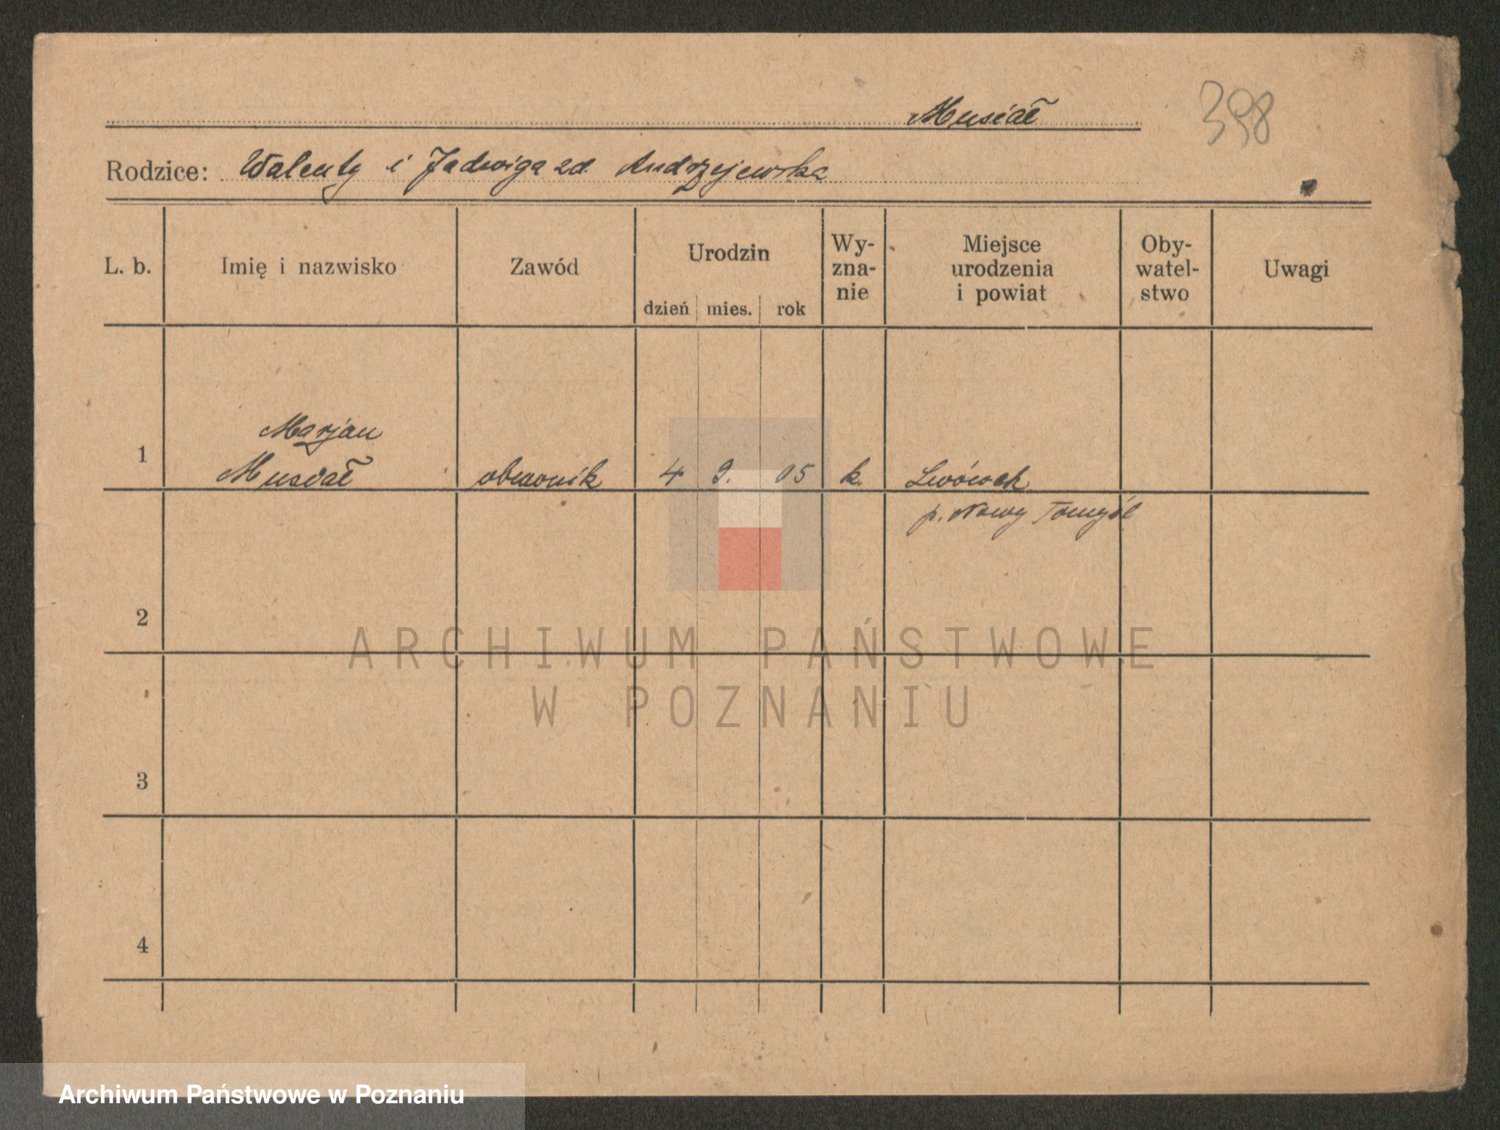 Musiał
398
Rodzice: Walenty i Jadwiga zd. Andrzejewska
L. b. Imię i nazwisko Zawód Urodzin dzień mies. rok Wy-zna-nie Miejsce urodzenia i powiat Oby-watel-stwo Uwagi
Marjan
1 Musiał 4 9. 05 k. Lwówek
p. Nowy Tomyśl
2
ARCHIWUM PAŃSTWOWE
W POZNANIU
3
4
Archiwum Państwowe w Poznaniu